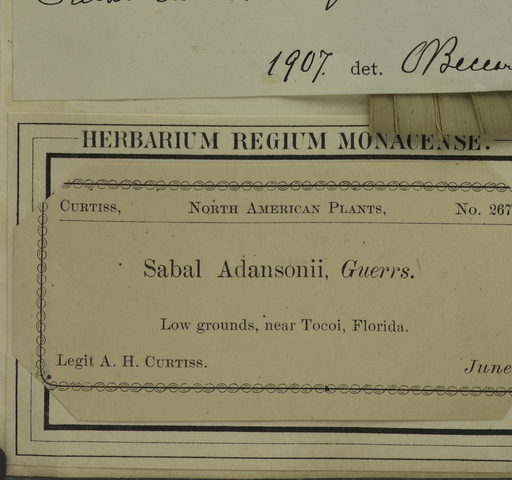 1907. det. OBeccar
HERBARIUM REGIUM MONACENSE.
CURTISS, NORTH AMERICAN PLANTS, No. 267
Sabal Adansonii, Guerrs.
Low grounds, near Tocoi, Florida.
Legit A. H. CURTISS. June